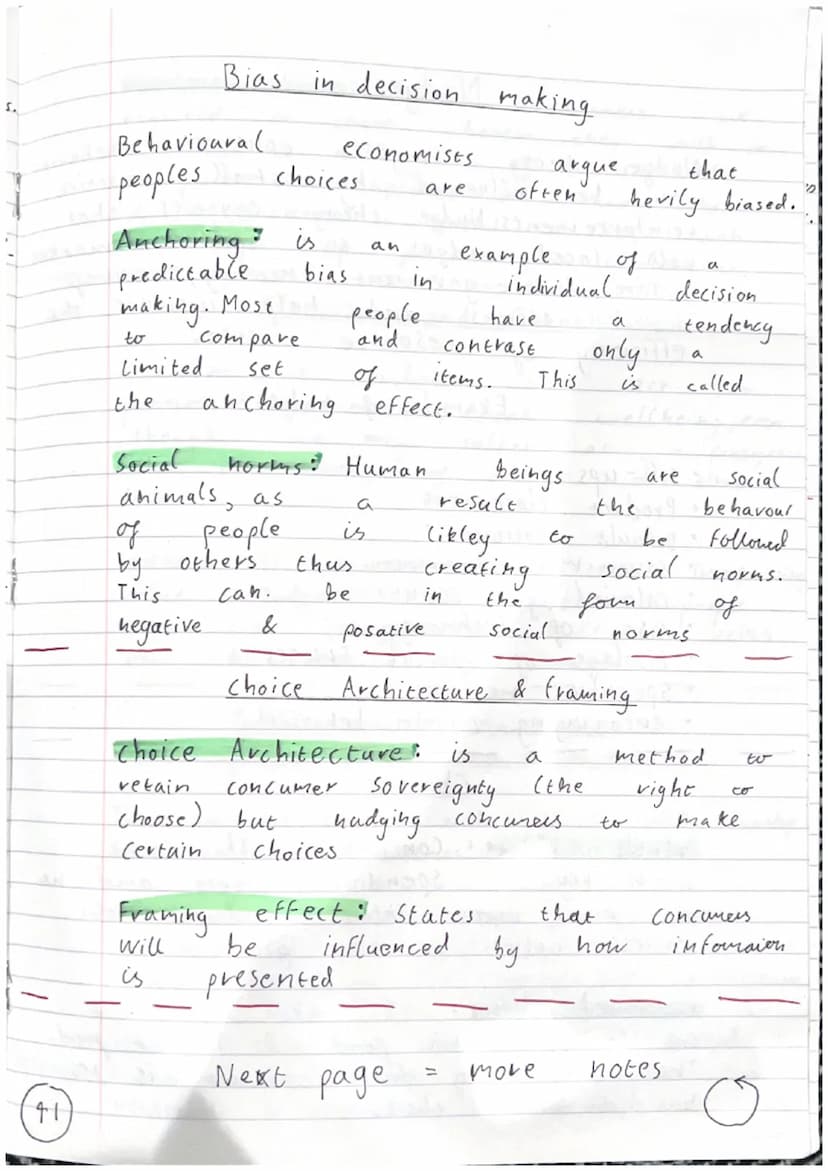 Bias in decision making
s.
Behavioural economists argue that
peoples choices are often hevily biased.
Anchoring: is an example of a
predictable bias in individual decision
making. Most people have a tendency
to compare and contrast only a
limited set of items. This is called
the anchoring effect.
Social norms: Human beings are social
animals, as a result the behavour
of people is likley to be followed
by others thus creating social norms.
This can. be in the form of
negative & posative social norms
Choice Architecture & framing
Choice Architecture: is a method to
retain concumer sovereignty (the right to
choose) but nudging concumers to make
certain choices
Framing effect: States that concumers
will be influenced by how
is presented
Next page = more notes
41